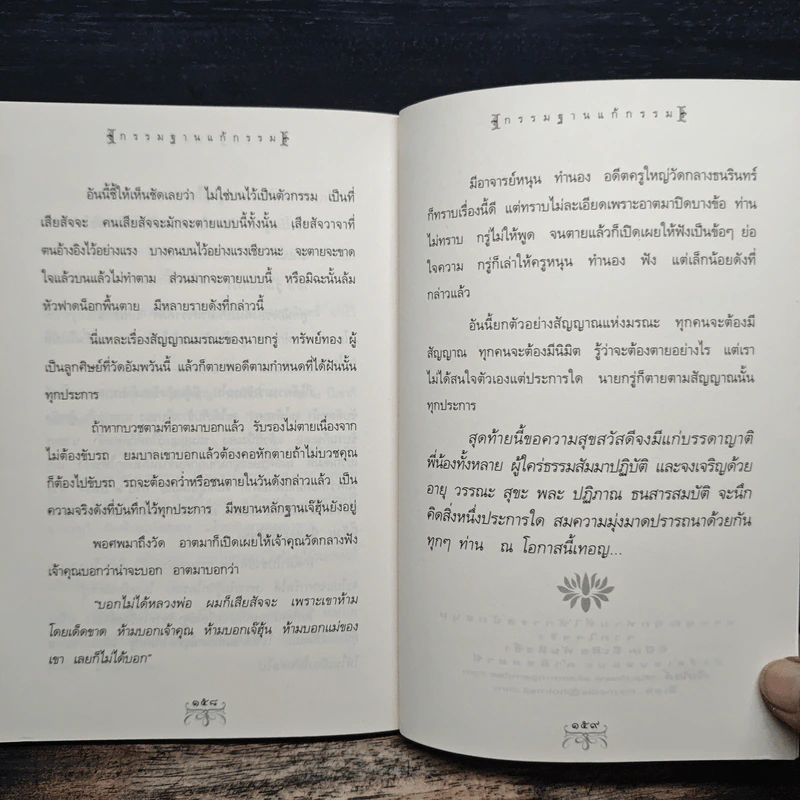 กรรมฐานแก้กรรม
อันนี้ชี้ให้เห็นชัดเลยว่า ไม่ใช่บนไว้เป็นตัวกรรม เป็นที่
เสียสัจจะ คนเสียสัจจะมักจะตายแบบนี้ทั้งนั้น เสียสัจวาจาที่
ตนอ้างอิงไว้อย่างแรง บางคนบนไว้อย่างแรงเชียวนะ จะตายจะขาด
ใจแล้วบนแล้วไม่ทำตาม ส่วนมากจะตายแบบนี้ หรือมิฉะนั้นล้ม
หัวฟาดน็อกพื้นตาย มีหลายรายดังที่กล่าวนี้
นี่แหละเรื่องสัญญาณมรณะของนายกรู่ ทรัพย์ทอง ผู้
เป็นลูกศิษย์ที่วัดอัมพวันนี้ แล้วก็ตายพอดีตามกำหนดที่ได้ฝันนั้น
ทุกประการ
ถ้าหากบวชตามที่อาตมาบอกแล้ว รับรองไม่ตายเนื่องจาก
ไม่ต้องขับรถ ยมบาลเขาบอกแล้วต้องคอหักตายถ้าไม่บวชคุณ
ก็ต้องไปขับรถ รถจะต้องคว่ำหรือชนตายในวันดังกล่าวแล้ว เป็น
ความจริงดังที่บันทึกไว้ทุกประการ มีพยานหลักฐานเจ๊ฮุ้นยังอยู่
พอศพมาถึงวัด อาตมาก็เปิดเผยให้เจ้าคุณวัดกลางฟัง
เจ้าคุณบอกว่าน่าจะบอก อาตมาบอกว่า
"บอกไม่ได้หลวงพ่อ ผมก็เสียสัจจะ เพราะเขาห้าม
โดยเด็ดขาด ห้ามบอกเจ้าคุณ ห้ามบอกเจ๊ฮุ้น ห้ามบอกแม่ของ
เขา เลยก็ไม่ได้บอก"
๑๕๘
กรรมฐานแก้กรรม
มีอาจารย์หนุน ทำนอง อดีตครูใหญ่วัดกลางธนรินทร์
ก็ทราบเรื่องนี้ดี แต่ทราบไม่ละเอียดเพราะอาตมาปิดบางข้อ ท่าน
ไม่ทราบ กรู่ไม่ให้พูด จนตายแล้วก็เปิดเผยให้ฟังเป็นข้อๆ ย่อ
ใจความ กรู่ก็เล่าให้ครูหนุน ทำนอง ฟัง แต่เล็กน้อยดังที่
กล่าวแล้ว
อันนี้ยกตัวอย่างสัญญาณแห่งมรณะ ทุกคนจะต้องมี
สัญญาณ ทุกคนจะต้องมีนิมิต รู้ว่าจะต้องตายอย่างไร แต่เรา
ไม่ได้สนใจตัวเองแต่ประการใด นายกรู่ก็ตายตามสัญญาณนั้น
ทุกประการ
สุดท้ายนี้ขอความสุขสวัสดีจงมีแก่บรรดาญาติ
พี่น้องทั้งหลาย ผู้ใคร่ธรรมสัมมาปฏิบัติ และจงเจริญด้วย
อายุ วรรณะ สุขะ พละ ปฏิภาณ ธนสารสมบัติ จะนึก
คิดสิ่งหนึ่งประการใด สมความมุ่งมาดปรารถนาด้วยกัน
ทุกๆ ท่าน ณ โอกาสนี้เทอญ...
๑๕๙